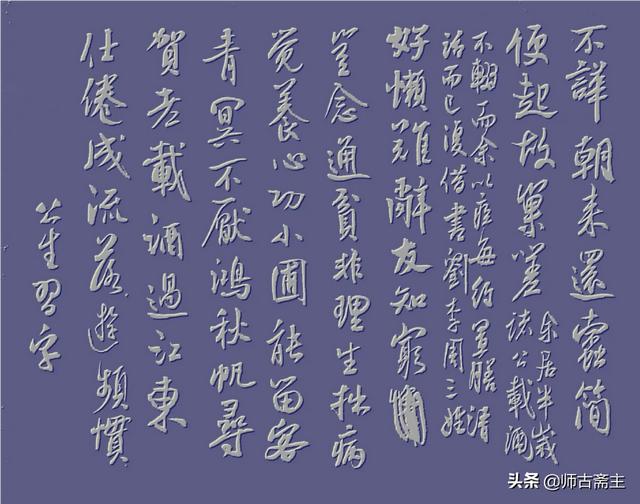 不譁朝来還蠹簡
便起故巢嗟
余居半歲
諸公載酒
不輟而余以疾每約置膳清
話而已復借書劉李周三姓
好懶難辭友知窮
豈念通貧非理生拙病
覺養心功小圃能留客
青冥不厭鴻秋帆尋
賀老載酒過江東
仕倦成流落遊頻慣
生習字
头条 @师古斋主